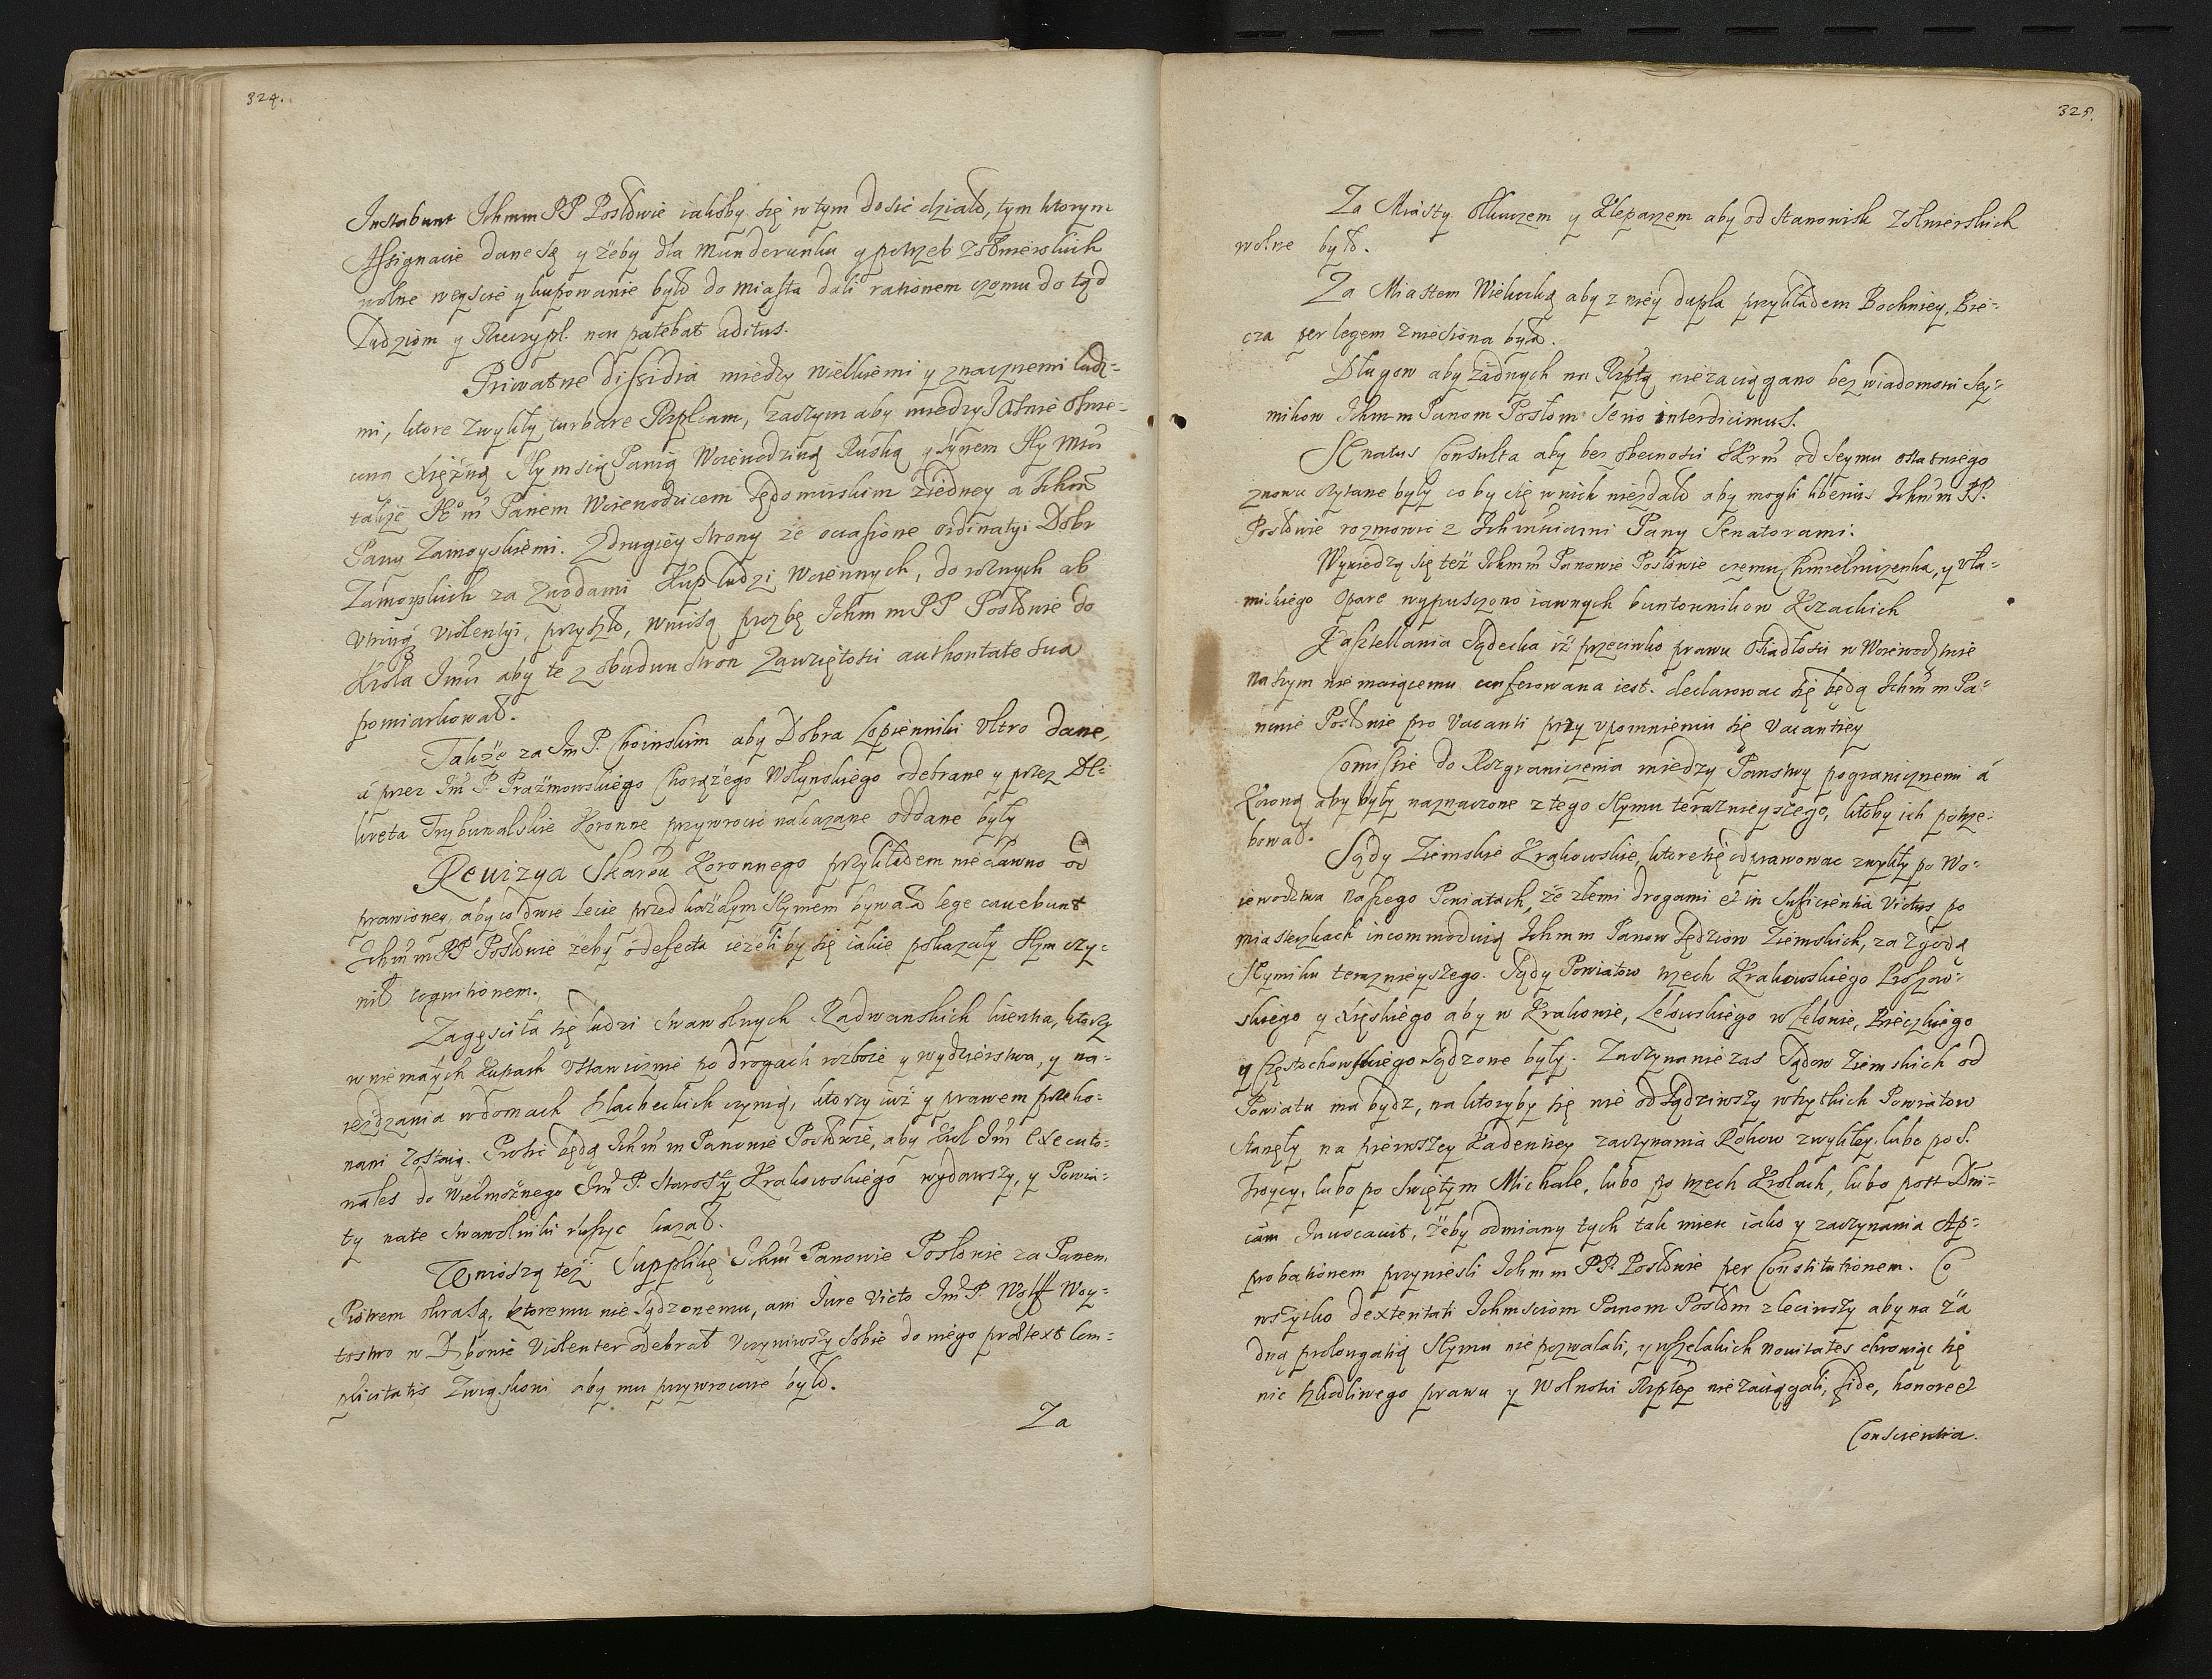 324.
Instabunt Ichmm PP Posłowie iakoby się w tym dosić działo, tym ktorym
Assignacie dane są y żeby dla Munderunku y potrzeb żołnierskich
wolne weyscie y kupowanie było do miasta dali rationem czemu do tąd
Ludziom y Rzeczypl. non patebat aditus.
Priwatne dissidia miedzy wielkiemi y znacznemi ludz-
mi, ktore zwykły turbare Rzplcam, zaczym aby miedzy Jaśnie Oświe-
coną Xiężną Jey mscią Panią Woiewodziną Ruską y Synem Jey Mści
także Je° mś Panem Woiewodzicem Sędomirskim z iedney a Ichm
Pany Zamoyskiemi. Z drugiey strony ze occasione ordinatyi Dobr
Zamoyskich za zwodami Kup ludzi Woiennych, do rożnych ab
utrinq violentyi, przyszło, wniosą prozbę Ichm m PP Posłowie do
Krola Jmści aby te z obudwu stron Zawziętości authoritate sua
pomiarkował.
Także za Jm P. Choinskim aby Dobra Łopienniki Ultro dane,
á przez Jm P. Prażmowskiego Chorążego Wołynskiego odebrane y przez De-
kreta Trybunalskie Koronne przywrocić nakazane oddane były
Rewizya Skarbu Koronnego przykładem nie dawno od
prawioney, aby co dwie lecie przed każdym Seymem bywała lege cavebunt
Ichmm PP Posłowie żeby o defecta ieżeli by się iakie pokazały Seym czy-
nił cognitionem.
Zagęsciła się ludzi swawolnych Radwanskich licentia, ktorzy
w nie małych kupach ustawicznie po drogach rozboie y wydzierstwa, y na-
iezdzania w domach szlacheckich czynią, ktorzy iuż y prawem przeko-
nani zostaią. Prosić będą Ichm m Panowie Posłowie, aby Krol Jm Executo-
riales do Wielmożnego Jm P. Starosty Krakowskiego wydawszy, y Powia-
ty na te swawolniki ruszyc kazał.
Wniosą też Supplikę Ichm Panowie Posłowie za Panem
Piotrem Skrasą, ktoremu nie sądzonemu, ani Jure victo Jm P. Wolff Woy-
tostwo w violenter odebrał uczyniwszy sobie do niego praetext com-
plicitatis Związkowi aby mu przywrocone było.
Za
325.
Za Miásty Olkuszem y Kleparzem aby od stanowisk żołnierskich
wolne były.
Za Miastem Wieliczką aby z niey dupla przykładem Bochniey, Bie-
cza per legem zniesiona była.
Długow aby żadnych na Rzptą nie zaciągano bez wiadomości Sey-
mikow Ichm m Panom Posłom serio interdicimus.
Senatus Consulta aby bez obecności JKrm od Seymu ostatniego
znowu czytane były co by się w nich niezdało aby mogli liberius Ichm m PP.
Posłowie rozmowić z Ichmściami Pany Senatorami.
Wywiedzą się też Ichm m Panowie Posłowie czemu Chmielniczenka, y
Opare wypuszczono iawnych buntownikow Kozackich
Kasztellania Sądecka iż przeciwko prawu Osiadłości w Woiewodztwie
naszym nie maiącemu conferowana iest. declarowac się będą Ichm m Pa-
nowie Posłowie pro vacanti przy upomnieniu się Vacantiey
Comissie do Rozgraniczenia miedzy Panstwy pogranicznemi á
Koroną aby były naznaczone z tego Seymu terazniejszego, ktoby ich potrze-
bował.
Sądy Ziemskie Krakowskie, ktore się odprawowac zwykły po Wo-
iewodztwa Naszego Powiatach, że złemi drogami et in sufficientia victus po
miasteczkach incommoduią Ichm m Panow Sędziow Ziemskich, za zgodą
Seymiku terazniejszego. Sądy Powiatow trzech Krakowskiego Proszow-
skiego y Xięskiego aby w Krakowie, Lelowskiego w Lelowie, Bieczkiego
y Czchowskiego sądzone były. Zaczynanie zas Sądow Ziemskich od
Powiatu ma bydz, na ktoryby się nie odsądziwszy wszytkich Powiatow
Stanęły na pierwszey Kadentiey zaczynania Rokow zwykłey. lubo po S.
Troycy, lubo po Swiętym Michale, lubo po trzech Krolach, lubo post Dni-
cam Inuocauit, żeby odmiany tych tak mieisc iako y zaczynania Ap-
probationem przyniesli Ichm m PP. Posłowie per Constitutionem. Co
wszytko dexteritati Ichmsciom Panom Posłom zleciwszy aby na ża
dną prolongatią Seymu nie pozwalali, y wszelakich nouitates chroniąc się
nic szkodliwego prawu y Wolności Rzptey nie zaciągali, fide, honore et
Conscientia.